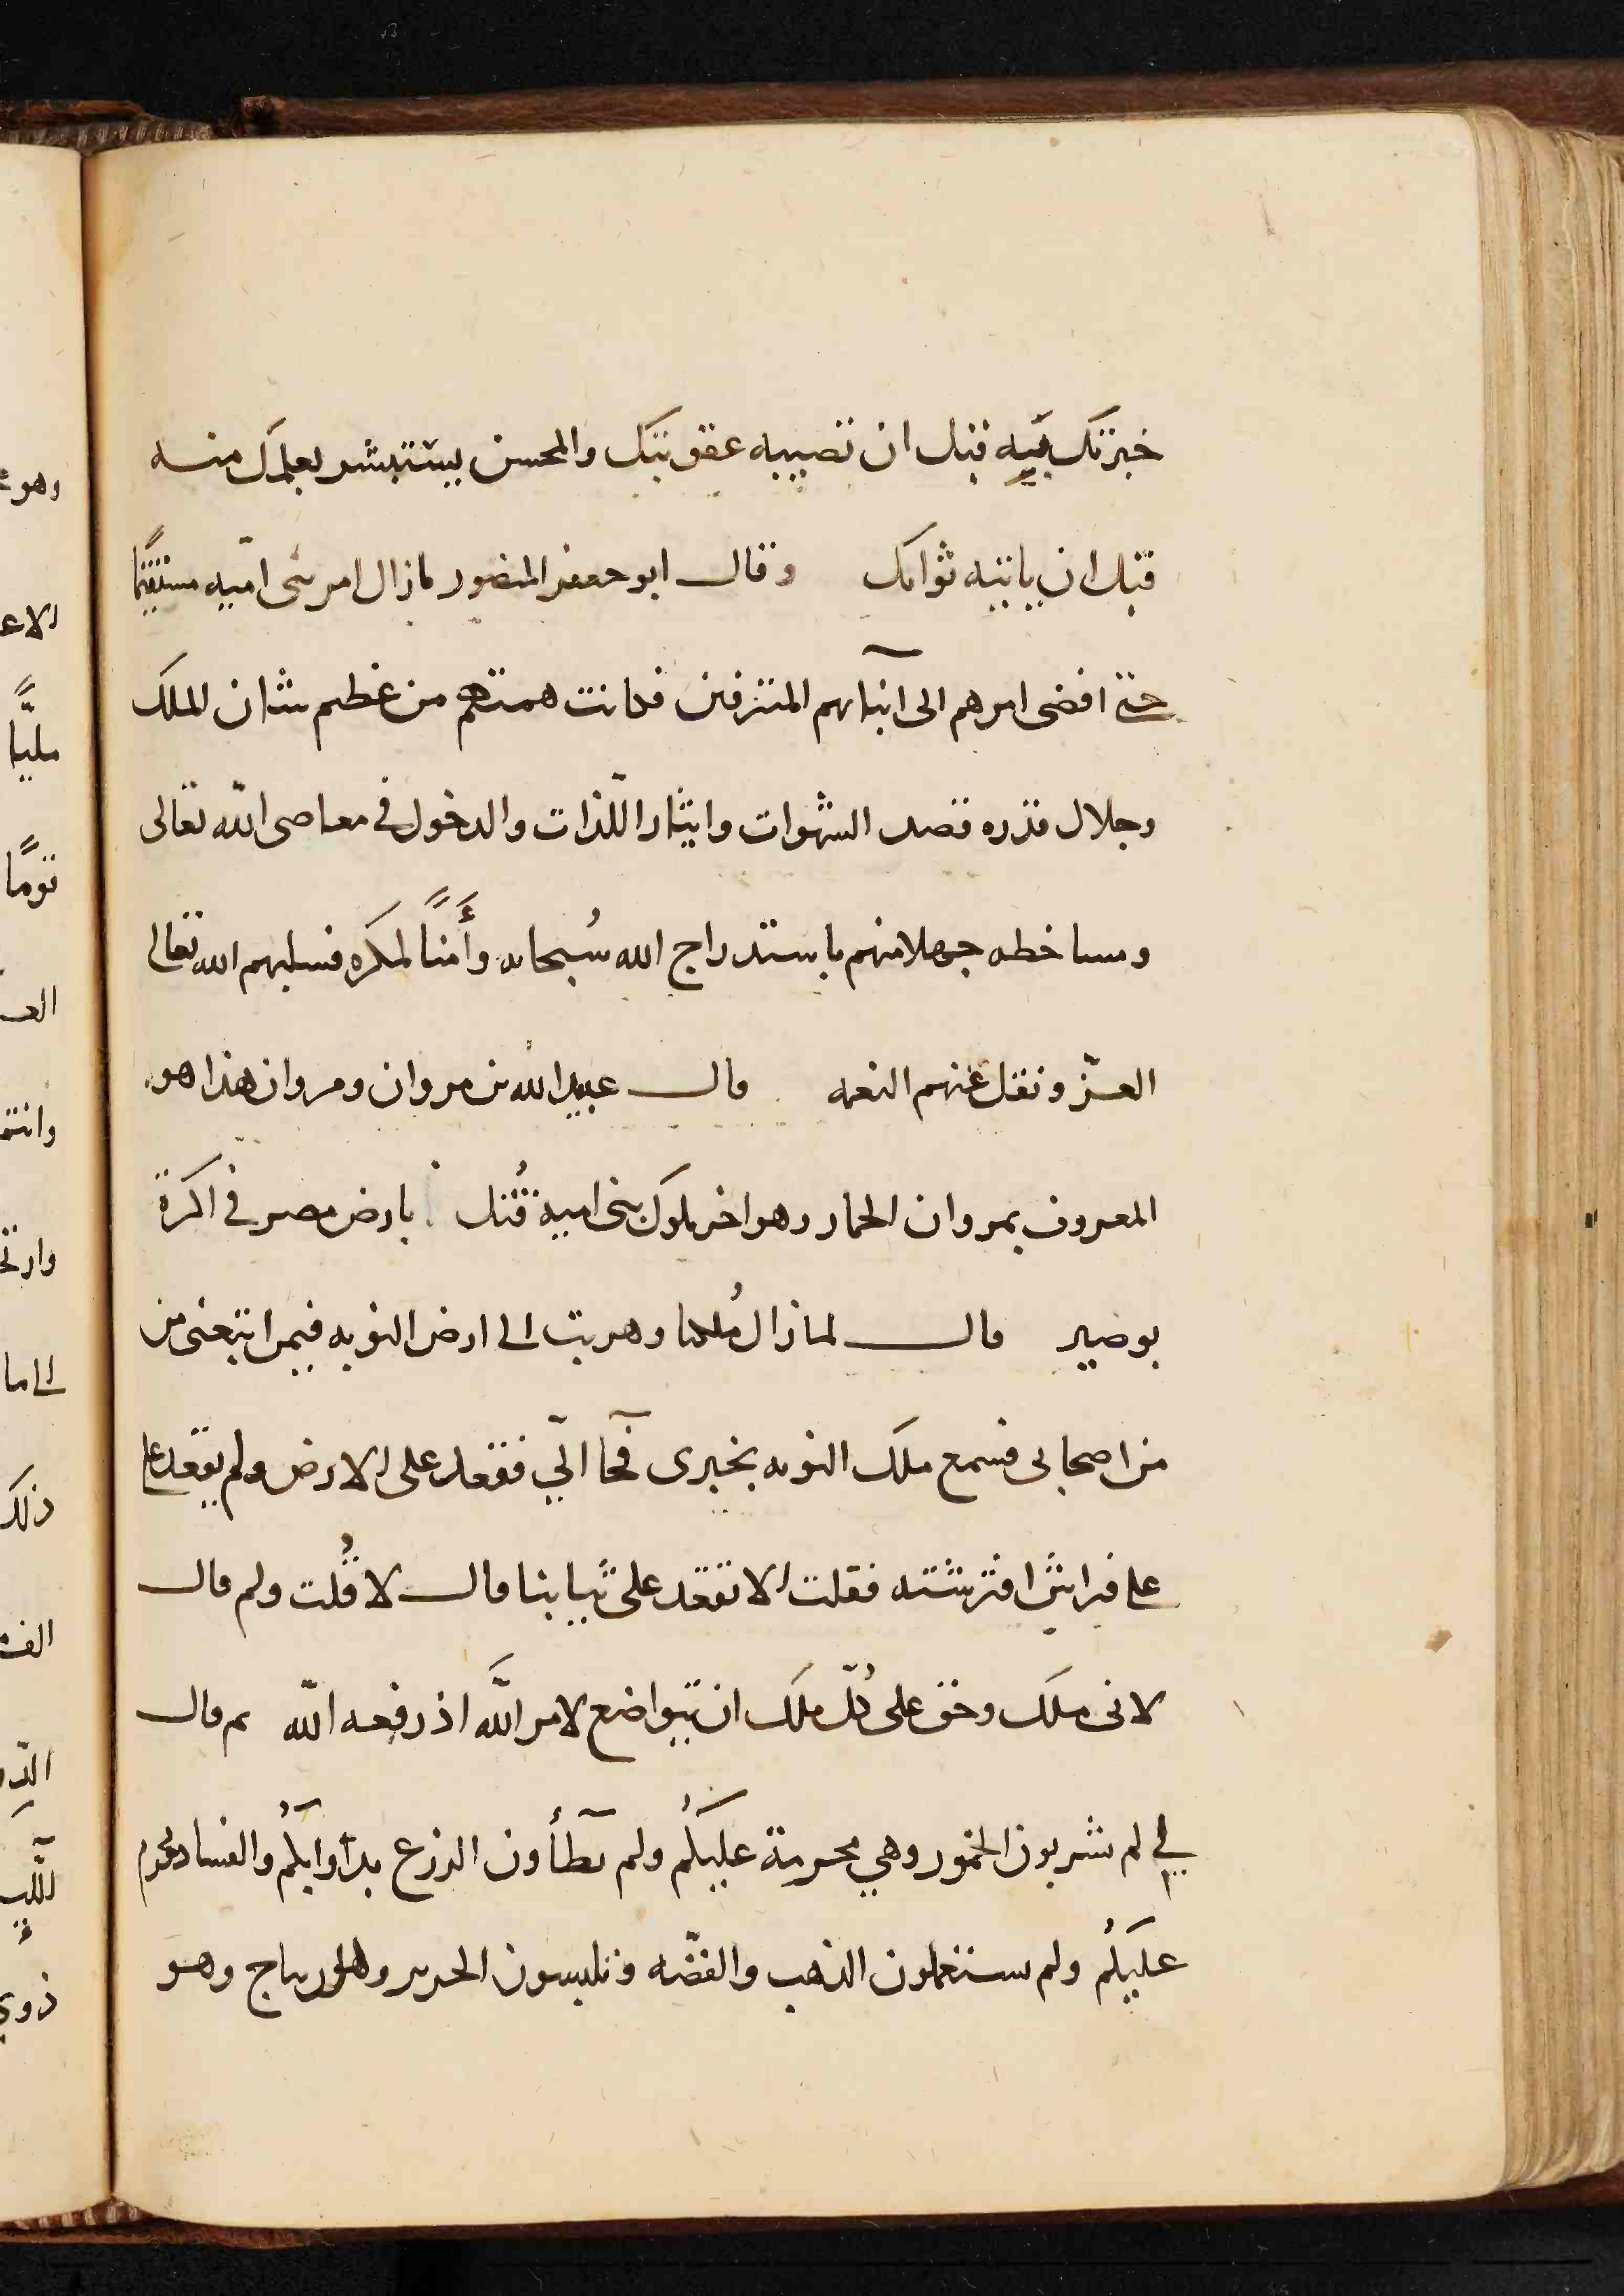 خبرتك به قبل ان تصيبه عقوبتك والمحسن يستبشر بعلمك منه
قبل ان ياتيه ثوابك وقال ابو جعفر المنصور مازال امر بنى اميه مستقيمًا
حتى افضى امرهم الى ابنآيهم المترفين فكانت همتهم من عظم شان الملك
وجلال قدره قصد الشهوات وايثار اللّذات والدخول فى معاصى الله تعالى
ومساخطه جهلا منهم باستدراج الله سُبحانه وأَمنًا لمكره فسلبهم الله تعالى
العزّ ونقل عنهم النعمه قال عبيد الله بن مروان ومروان هذا هو
المعروف بمروان الحمار وهو اخر ملوك بنى امية قُتل بارض مصر فى اكرة
بوصير قال لما زال مُلكنا وهربت الى ارض النوبه فيمن اتبعنى من
من اصحابى فسمع ملك النوبه بخبرى فجآ الىّ فقعد على الارض ولم يقعد على
على فراش افترشته فقلت الا تقعد على ثيابنا قال لا قُلت ولم قال
لانى ملك وحق على كُلّ ملك ان يتواضع لامر اللَّه اذ رفعه اللّه ثم قال
لى لم تشربون الخمور وهي محرمة عليكُم ولم تطأون الزرع بدوآبكُم والفساد محرم
عليكُم ولم تستعملون الذهب والفضّه وتلبسون الحرير والديباج وهو
وهو
الاع
مليًّا
نومًا
الع
الى ما
ذلك
ذوي